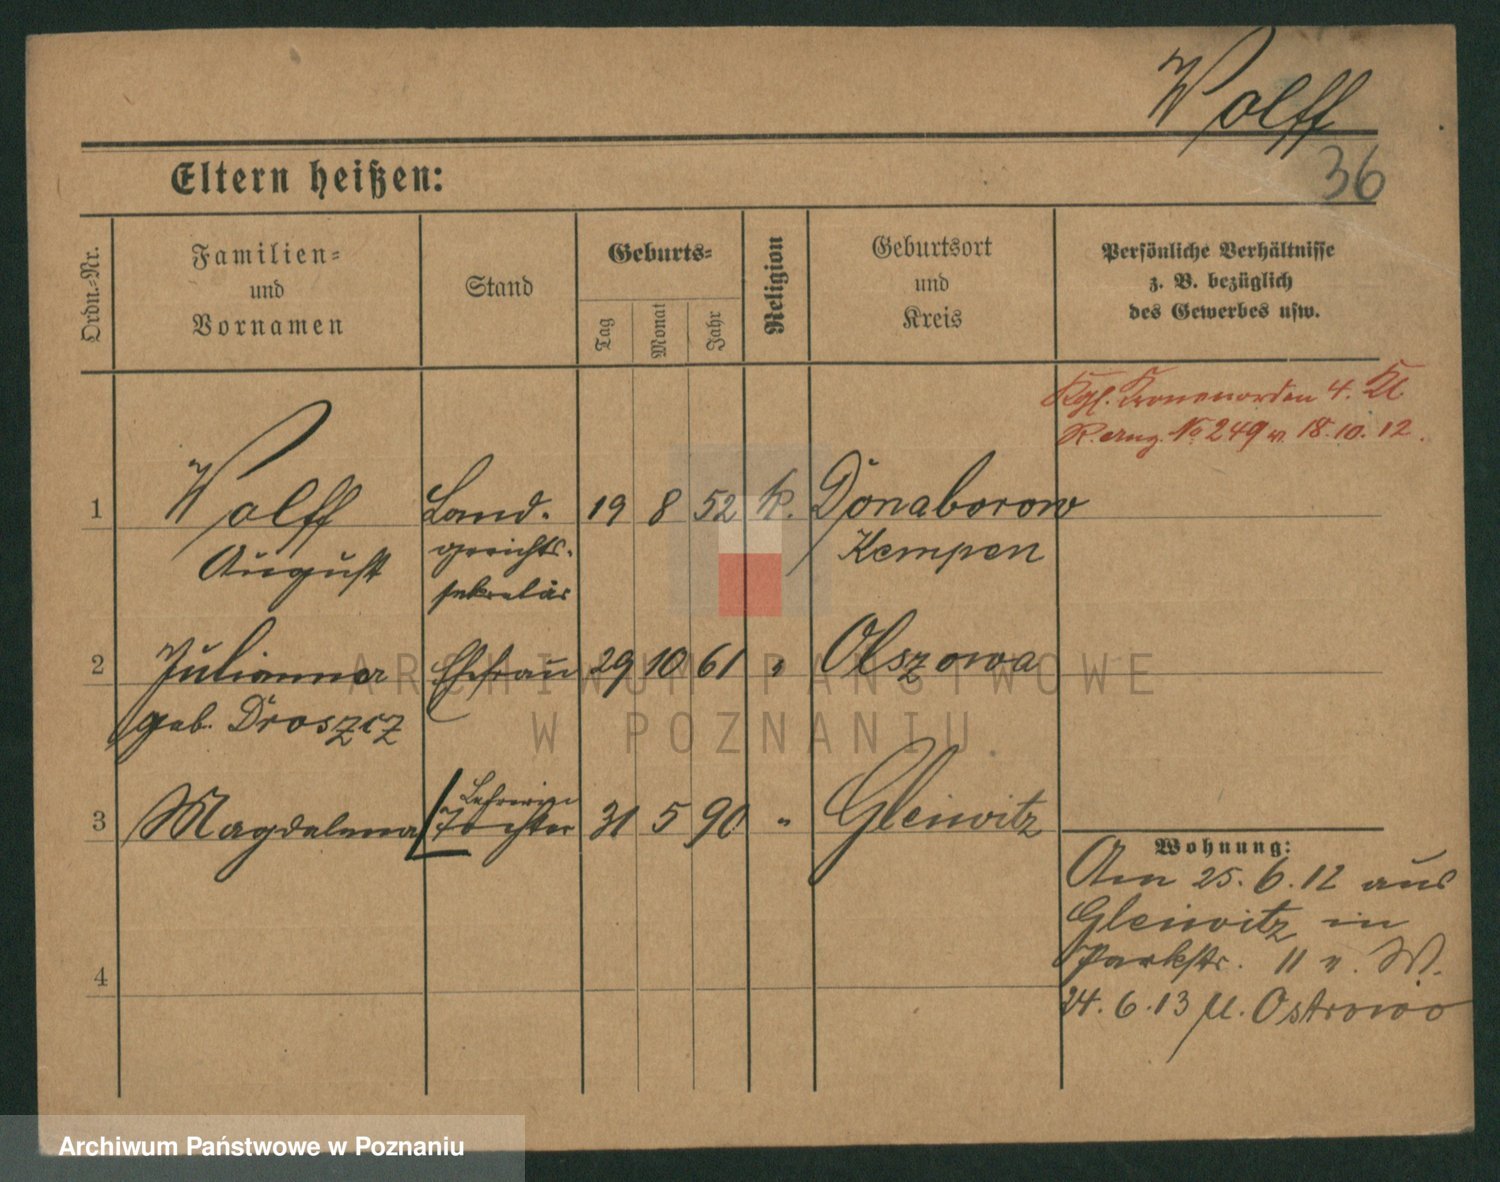 Wolff
36
Eltern heißen:
Ordn.-Nr.
Familien-
und
Vornamen
Stand
Geburts-
Tag
Monat
Jahr
Religion
Geburtsort
und
Kreis
Persönliche Verhältnisse
z. B. bezüglich
des Gewerbes usw.
Kgl. Kronenorden 4. Kl
R. anz. No 249 v. 18.10.12.
1 Wolff Land- 19 8 52 k. Donaborow
August gerichts- Kempen
sekretär
2 Julianna Ehefrau 29 10 61 " Olszowa
geb. Droszcz
Lehrerin
3 Magdalena Tochter 31 5 90 " Gleiwitz
4
Wohnung:
Am 25.6.12 aus
Gleiwitz in
Parkstr. 11 v. W.
24.6.13 n. Ostrowo
ARCHIWUM PAŃSTWOWE
W POZNANIU
Archiwum Państwowe w Poznaniu